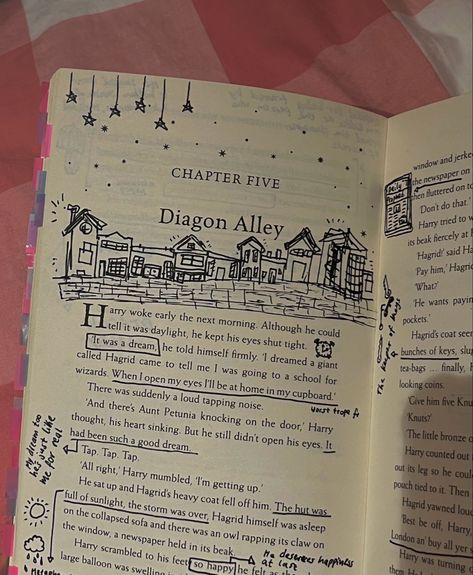 CHAPTER FIVE
Diagon Alley
Harry woke early the next morning. Although he could
tell it was daylight, he kept his eyes shut tight.
'It was a dream,' he told himself firmly. 'I dreamed a giant
called Hagrid came to tell me I was going to a school for
wizards. When I open my eyes I'll be at home in my cupboard.'
worst trope fr
There was suddenly a loud tapping noise.
'And there's Aunt Petunia knocking on the door,' Harry
thought, his heart sinking. But he still didn't open his eyes. It
had been such a good dream.
Tap. Tap. Tap.
'All right,' Harry mumbled, 'I'm getting up.'
He sat up and Hagrid's heavy coat fell off him. The hut was
full of sunlight, the storm was over, Hagrid himself was asleep
on the collapsed sofa and there was an owl rapping its claw on
the window, a newspaper held in its beak.
He deserves happiness
at last
Harry scrambled to his feet, so happy he felt as though
large balloon was swelling
My dream too
has just like
me for real
Metaphor
Daily
Prophet
The keeper of keys
window and jerked
the newspaper on
then fluttered on t
'Don't do that.'
Harry tried to w
its beak fiercely at H
'Hagrid!' said Ha
'Pay him,' Hagrid
'What?'
'He wants paying
pockets.'
Hagrid's coat seem
bunches of keys, slug
tea-bags ... finally, H
looking coins.
'Give him five Knut
'Knuts?'
'The little bronze o
Harry counted out
out its leg so he coul
pouch tied to it. Then
Hagrid yawned loud
'Best be off, Harry,
London an' buy all yer
Harry was turning